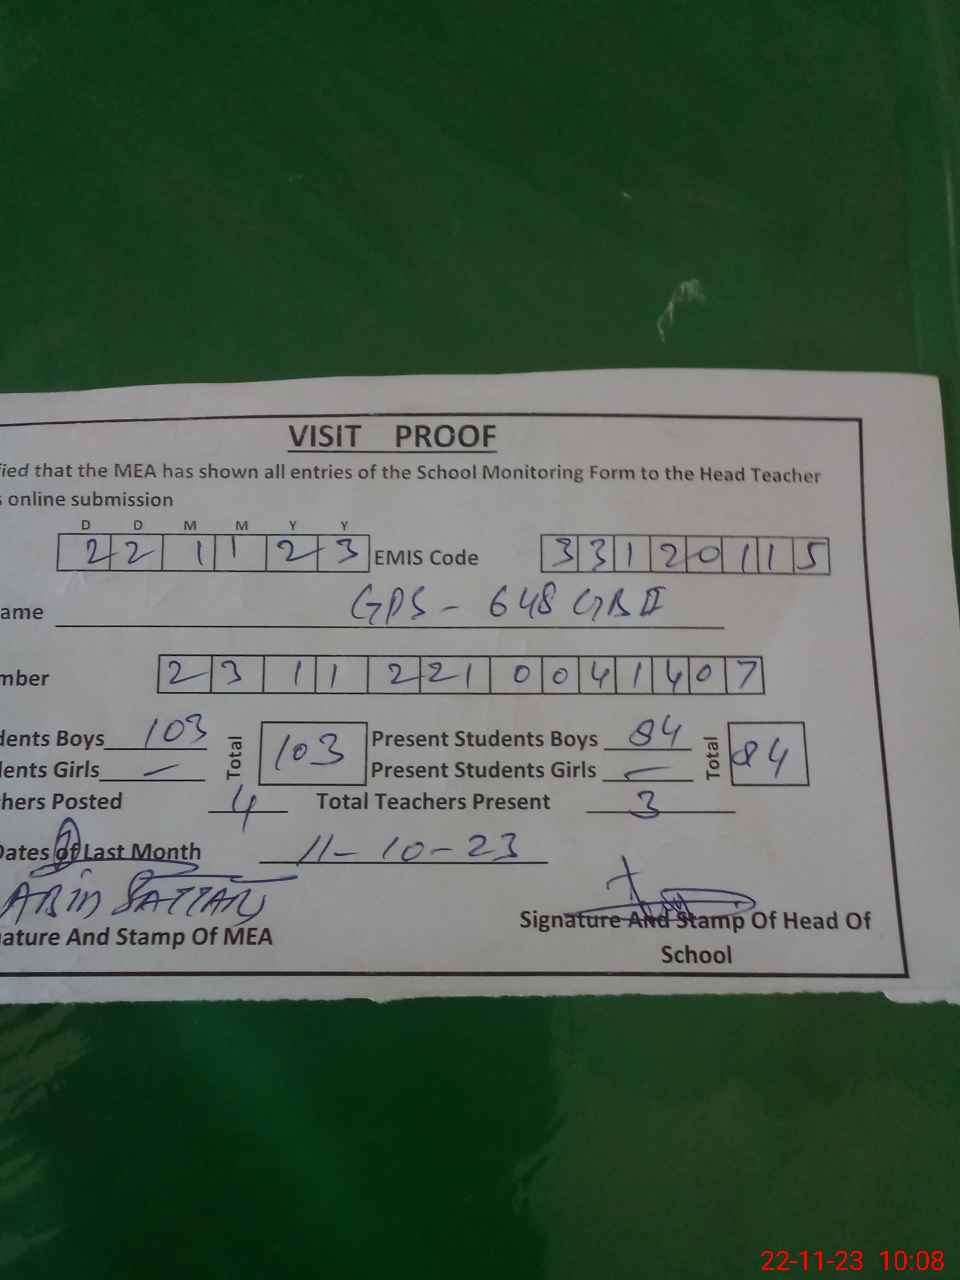 VISIT PROOF
fied that the MEA has shown all entries of the School Monitoring Form to the Head Teacher
s online submission
D D M M Y Y
2 2 1 1 2 3 EMIS Code 3 3 1 2 0 1 1 5
ame GPS - 648 GB II
mber 2 3 1 1 2 2 1 0 0 4 1 4 0 7
dents Boys 103 Total 103 Present Students Boys 84 Total 84
dents Girls - Present Students Girls -
hers Posted 4 Total Teachers Present 3
Dates of Last Month 11-10-23
SATTAR
nature And Stamp Of MEA Signature And Stamp Of Head Of
School
22-11-23 10:08